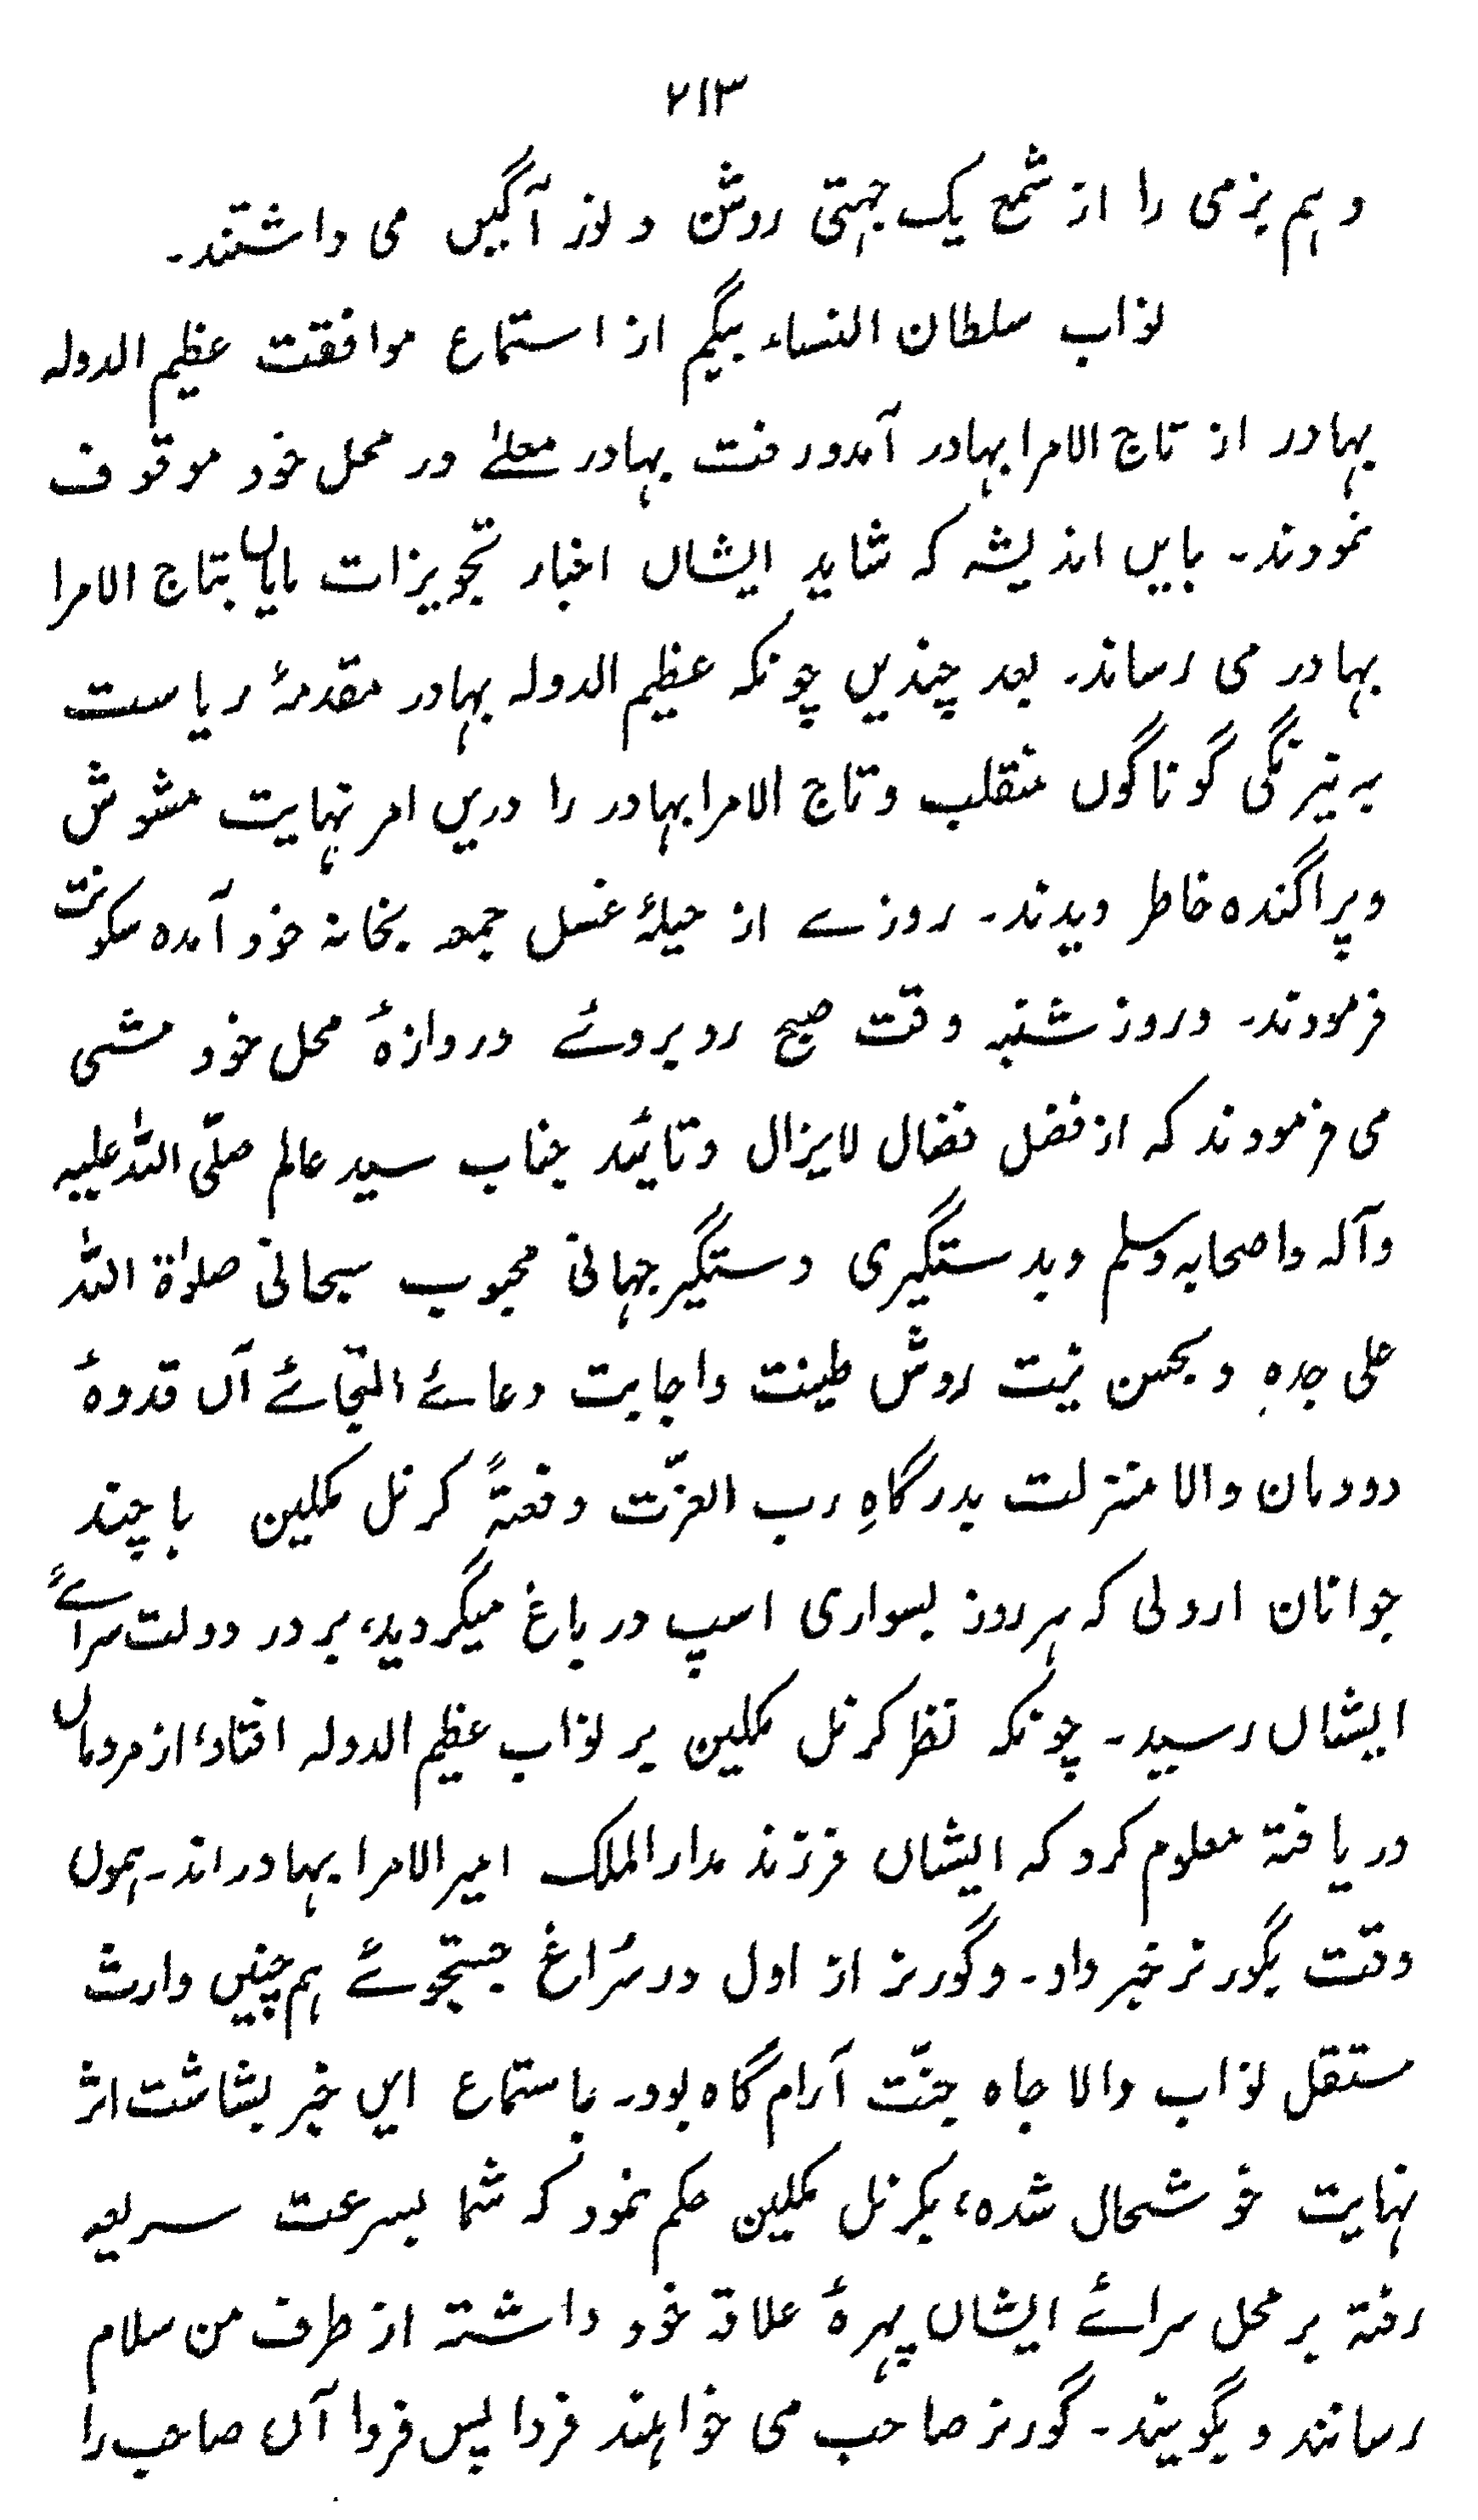 ۲۱۳
و ہم بزمی را از شمع یک جہتی روشن و نور آگیں می داشتند۔
نواب سلطان النساء بیگم از استماع موافقت عظیم الدولہ
بہادر از تاج الامرا بہادر آمدورفت بہادر معلےٰ در محل خود موقوف
نمودند۔ بایں اندیشہ کہ شاید ایشاں اخبار تجویزات مایاں بتاج الامرا
بہادر می رساند۔ بعد چندیں چونکہ عظیم الدولہ بہادر مقدمۂ ریاست
بہ نیرنگی گوناگوں منقلب و تاج الامرا بہادر را دریں امر نہایت مشوش
و پراگندہ خاطر دیدند۔ روزے از حیلۂ غسل جمعہ بخانہ خود آمدہ سکونت
فرمودند۔ و روز شنبہ وقت صبح روبروئے دروازۂ محل خود مشی
می فرمودند کہ از فضل فضال لایزال و تائید جناب سید عالم صلّی اللہ علیہ
و آلہ و اصحابہ وسلم و بدستگیری دستگیر جہانی محبوب سبحانی صلوٰۃ اللہ
علی جدہٖ و بحسن نیت روش طینت و اجابت دعائے التجائے آں قدوۂ
دودمان والا منزلت بدرگاہِ رب العزّت دفعتہً کرنل مکلین با چند
جوانان اردلی کہ ہر روز بسواری اسپ در باغ میگردید، بر در دولت سرائے
ایشاں رسید۔ چونکہ نظر کرنل مکلین بر نواب عظیم الدولہ افتاد، از مردماں
دریافتہ معلوم کرد کہ ایشاں فرزند مدار الملک امیر الامرا بہادر اند۔ ہموں
وقت بگورنر خبر داد۔ و گورنر از اول در سُراغ جستجوئے ہم چنیں وارث
مستقل نواب والا جاہ جنّت آرام گاہ بود۔ باستماع ایں خبر بشاشت اثر
نہایت خوشحال شدہ، بکرنل مکلین حکم نمود کہ شما بسرعت سریعہ
رفتہ بر محل سرائے ایشاں پہرۂ علاقہ خود داشتہ از طرف من سلام
رسانند و بگویند۔ گورنر صاحب می خواہند فردا پس فردا آں صاحب را